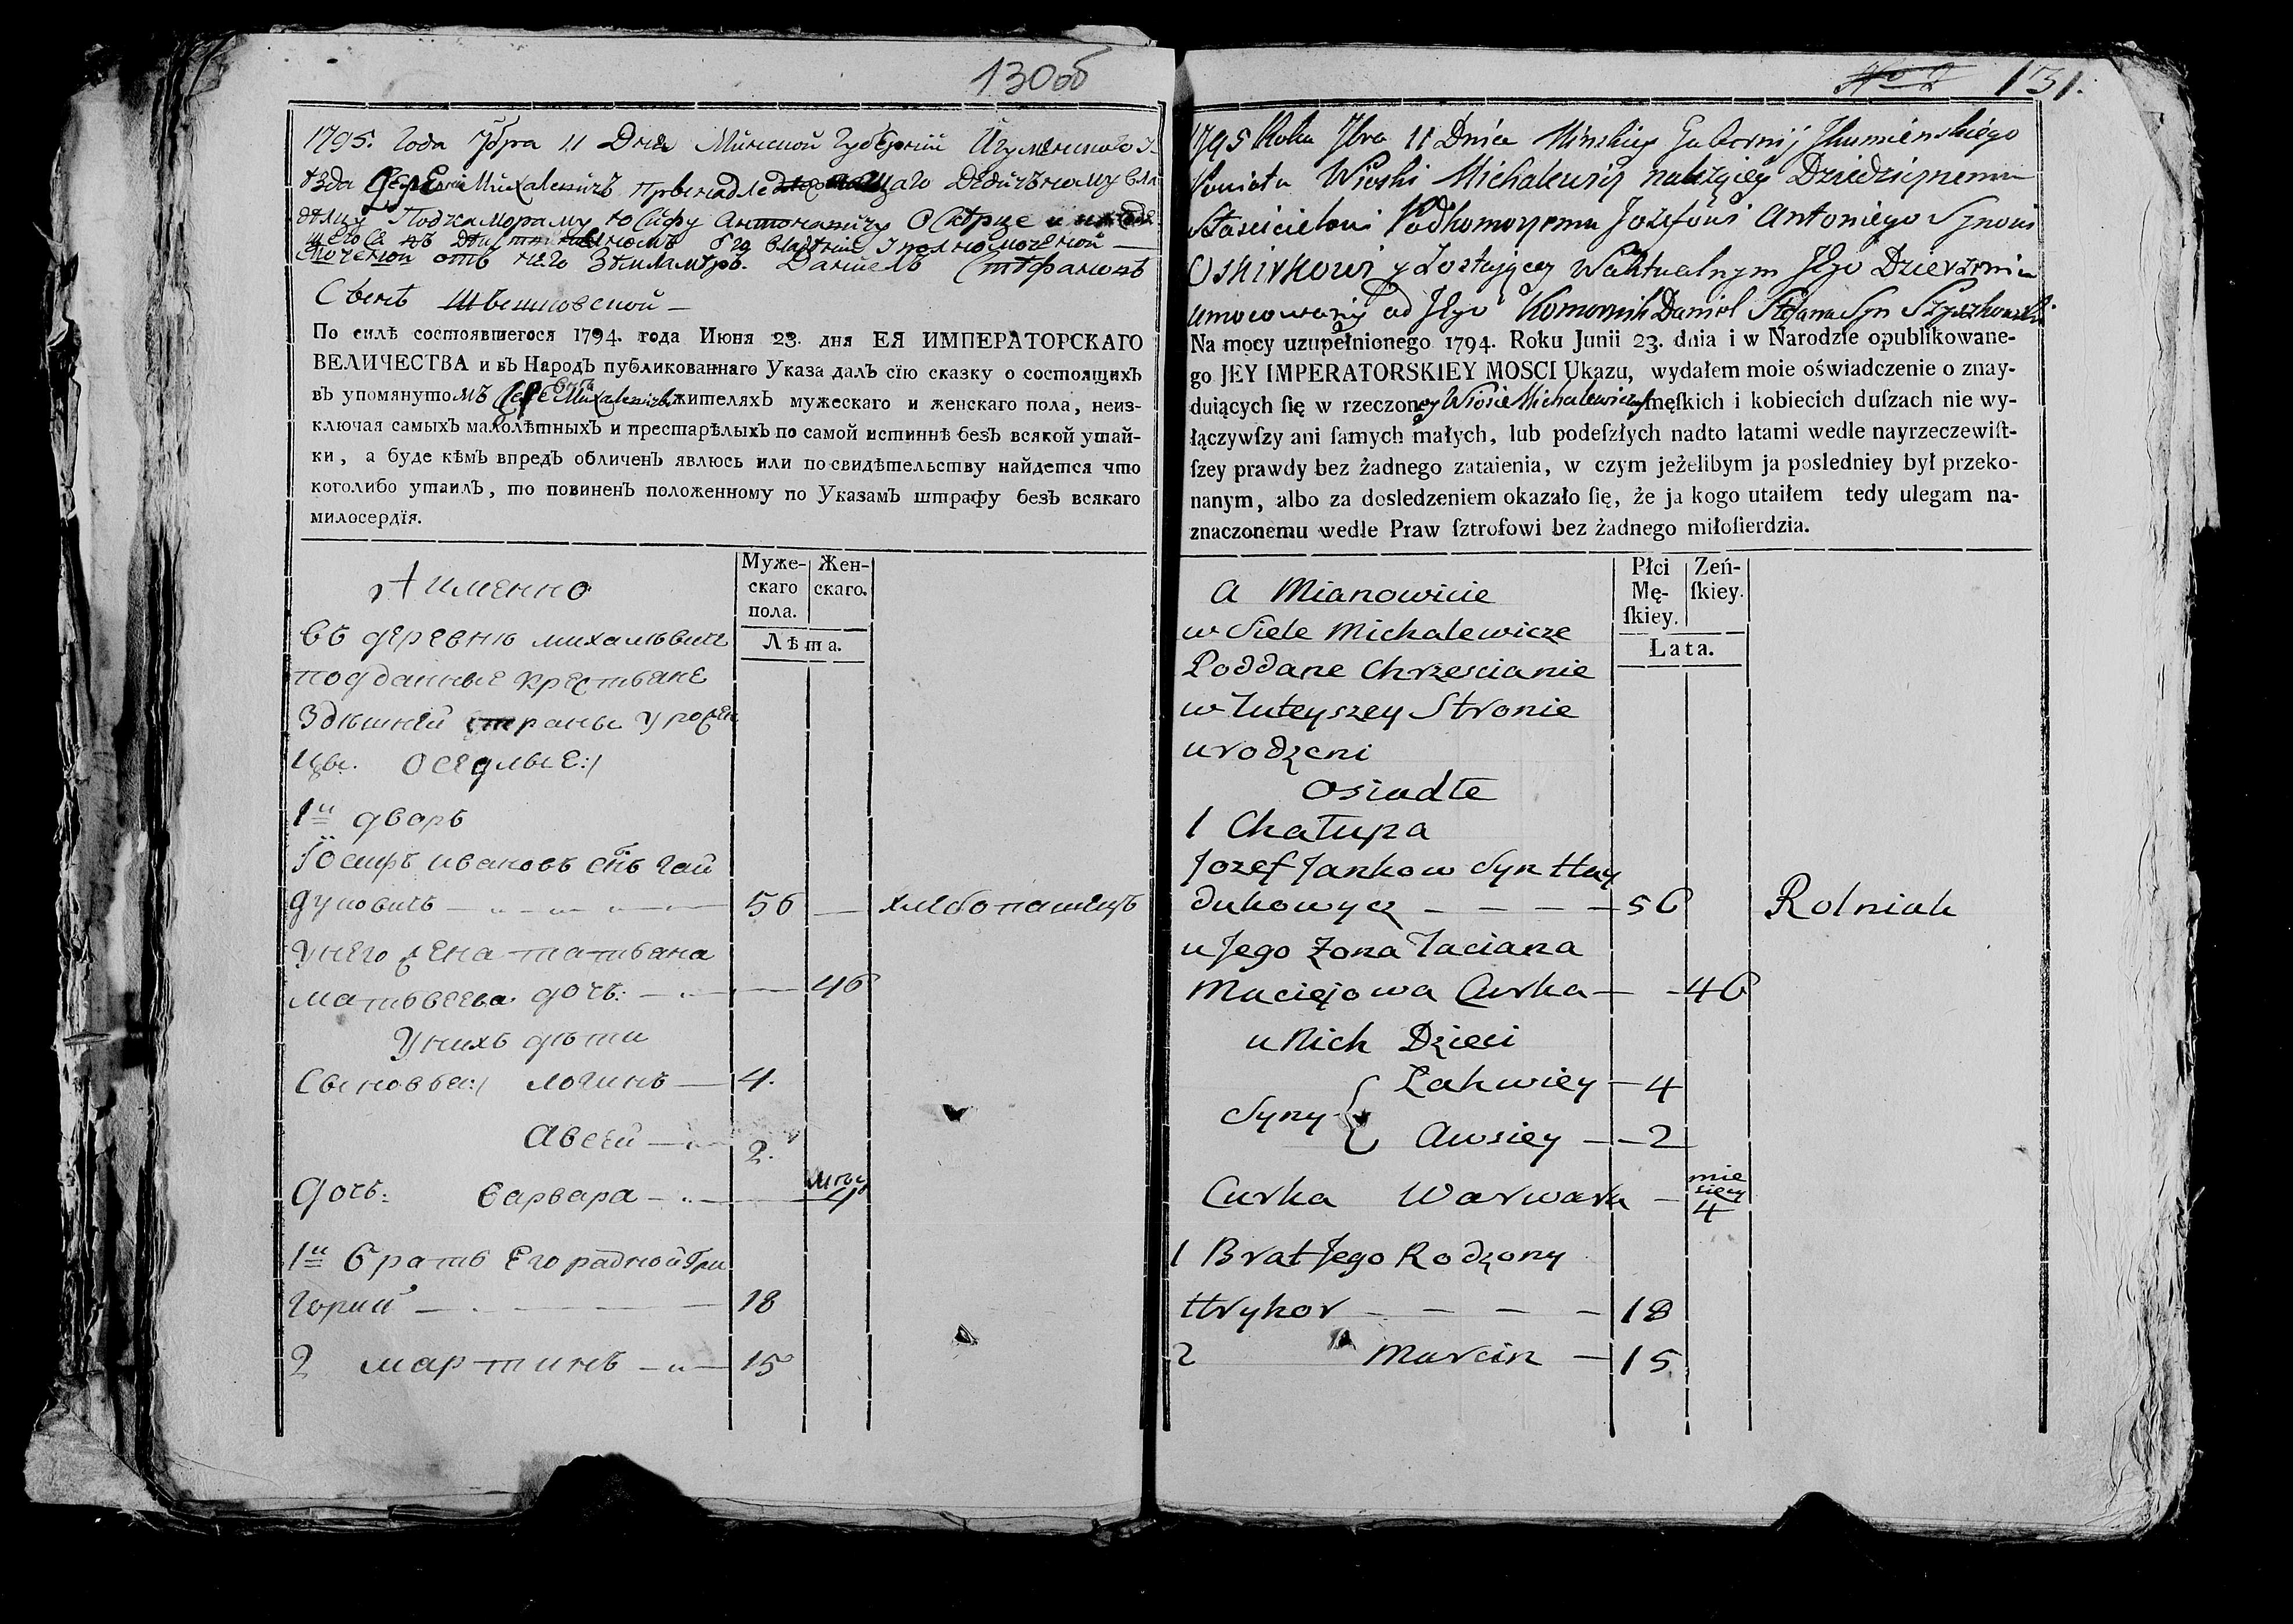 130об
1795. Года 7бра 11 Дня Минской Губернии Игуменского У-
езда Деревни Михалевичъ Дедичъному вла
дельцу Подкамораму Юсифу Антонавичу Оскерце
его
от него Даниелъ Стефановъ
Сынъ
По силѣ состоявшегося 1794. года Июня 23. дня ЕЯ ИМПЕРАТОРСКАГО
ВЕЛИЧЕСТВА и въ Народъ публикованнаго Указа далъ сїю сказку о состоящихъ
въ упомянутомъ Михалевичахъ жителяхъ мужескаго и женскаго пола, неиз-
ключая самыхъ малолѣтныхъ и престарѣлыхъ по самой истиннѣ безъ всякой утай-
ки, а буде кѣмъ впредъ обличенъ явлюсь или по свидѣтельству найдется что
коголибо утаилъ, то повиненъ положенному по Указамъ штрафу безъ всякаго
милосердїя.
А именно
Муже-
скаго
пола.
Жен-
скаго.
Лѣта.
въ деревню михалѣвиче
подданные крестьяне
Здѣшней страны урожен
цы. оседлые:/
1й дворъ
Иосифъ ивановъ снъ гай
дуковичъ 56 — хлебопашецъ
У него жена татьяна
матьвеева дочь: 46
У нихъ дѣти
Сыновья:/ логинъ — 4.
Авсей — 2.
Дочь: варвара — 4
1й братъ Его радной Гри
горий — 18
2 мартинъ — 15
131.
1795 Roku 7bra 11 Dnia Minskiey Gubernij Jhumienskiego
Powiatu Wioski Michalewicz należącey Dziedzicznemu
Właścicielowi Podkomorzemu Jozefowi Antoniego Synowi
Oskirkowi y Zostającey w aktualnym Jego Dzierżeniu
umocowany od Jego Komornik Daniel Stefana Syn
Na mocy uzupełnionego 1794. Roku Junii 23. dnia i w Narodzie opublikowane-
go JEY IMPERATORSKIEY MOSCI Ukazu, wydałem moie oświadczenie o znay-
duiących ſię w rzeczoney Wiosie Michalewiczach męſkich i kobiecich duſzach nie wy-
łączywſzy ani ſamych małych, lub podeſzłych nadto latami wedle nayrzeczewiſt-
ſzey prawdy bez żadnego zataienia, w czym jeżelibym ja posledniey był przeko-
nanym, albo za dosledzeniem okazało ſię, że ja kogo utaiłem tedy ulegam na-
znaczonemu wedle Praw ſztrofowi bez żadnego miłoſierdzia.
a Mianowicie
Płci
Mę-
ſkiey.
Zeń-
ſkiey.
Lata.
w Siele Michalewicze
Poddane Chrzescianie
w tuteyszey Stronie
urodzeni
Osiadłe
1 Chałupa
Jozef Jankow Syn Hay
dukowycz — — — — 56 Rolniak
u Jego Żona Taciana
Maciejowa Curka — 46
u Nich Dzieci
Syny { Łakwiey — 4
Awsiey — 2
Curka Warwara — mie
sięcy
4
1 Brat Jego Rodzony
Hryhor — — — — 18
2 Marcin — 15